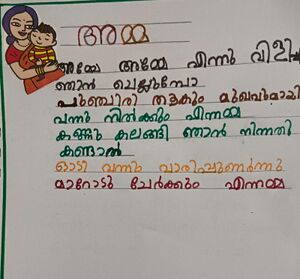 അമ്മ
അമ്മേ അമ്മേ എന്നു വിളി
ഞാൻ ചെല്ലുമ്പോ
പുഞ്ചിരി തൂകും മുഖവുമായി
വന്നു നിൽക്കും എന്നമ്മ
കണ്ണു കലങ്ങി ഞാൻ നിന്നതി
കണ്ടാൽ
ഓടി വന്നു വാരിപ്പുണർന്നു
മാറോടു ചേർക്കും എന്നമ്മ